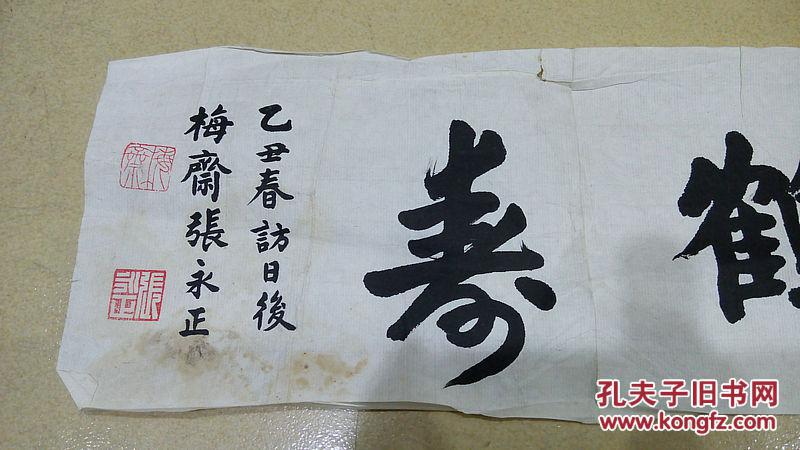 鶴
寿
乙丑春訪日後
梅齋張永正
張永正
孔夫子旧书网
www.kongfz.com